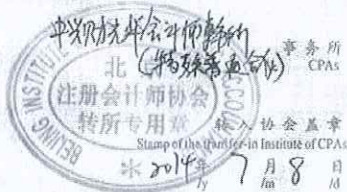 中兴财光华会计师事务所
(特殊普通合伙)
事务所
CPAs
北京
注册会计师协会
转所专用章
BEIJING INSTITUTE OF
转入协会盖章
Stamp of the transfer-in Institute of CPAs
2014年 7月 8日
/y /m /d